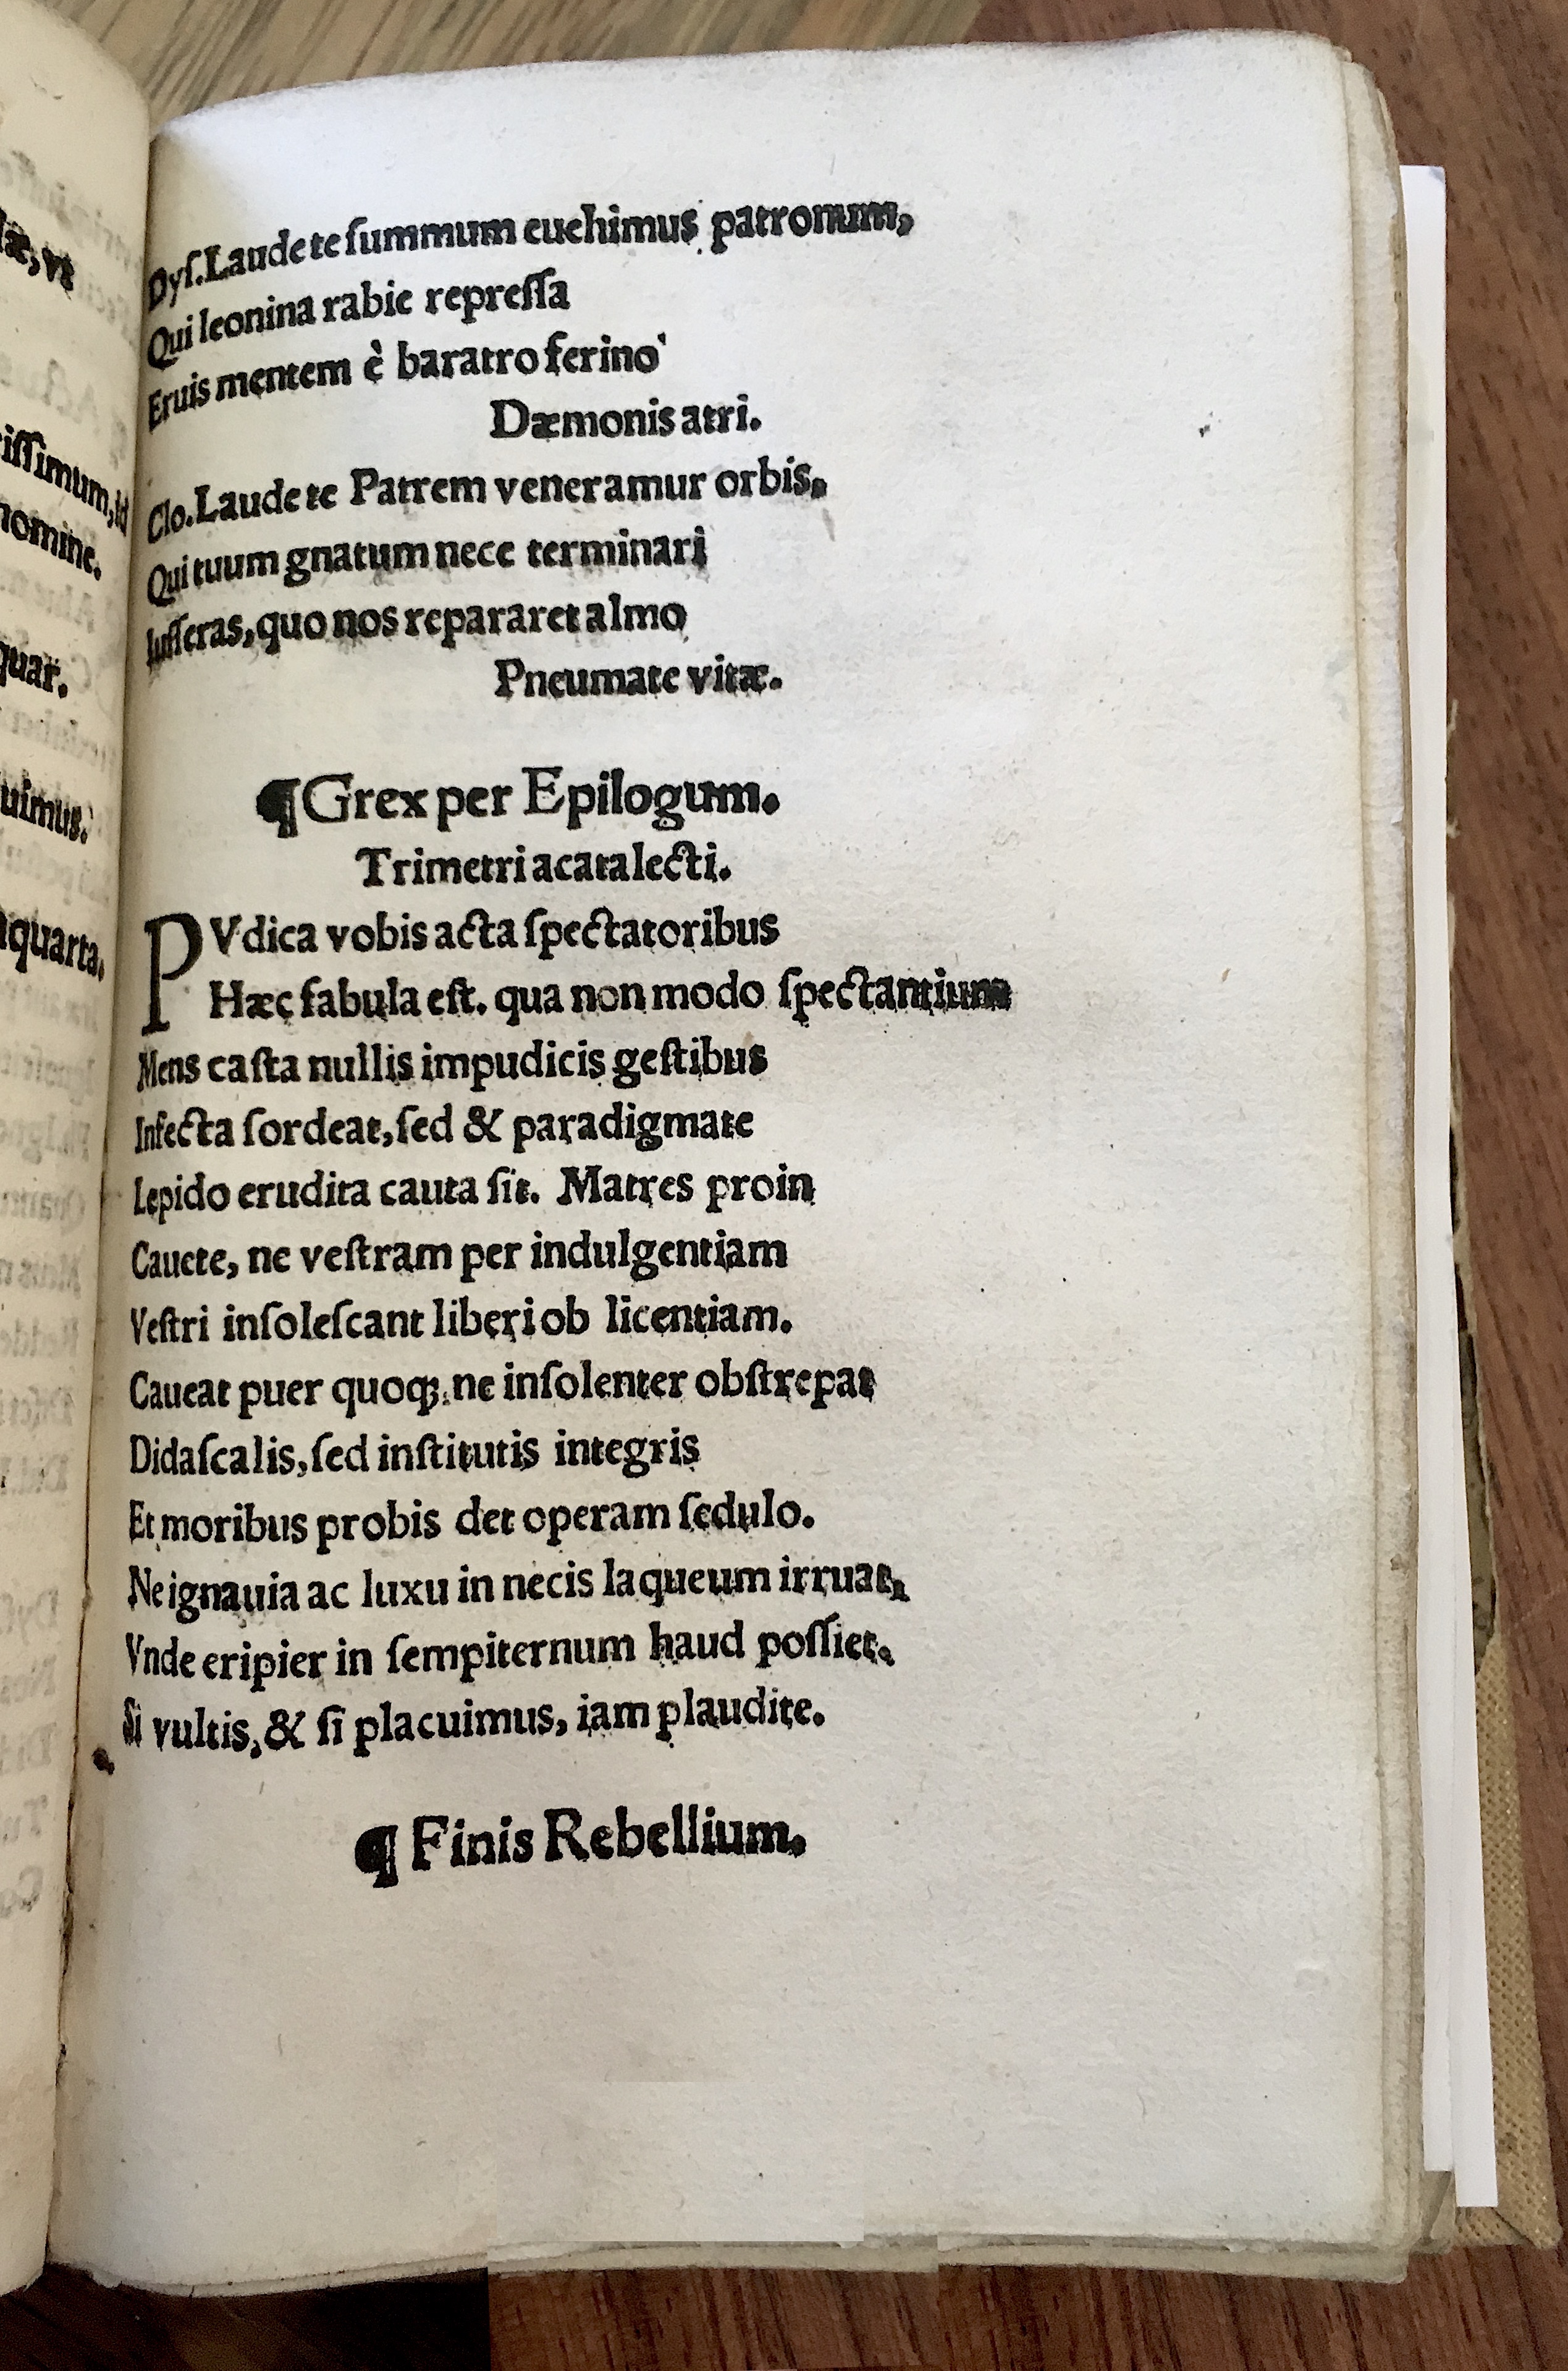 læ, vt
issimum, id
nomine.
quar.
uimus.
quarta,
Dyſ. Laude te ſummum euehimus patronum,
Qui leonina rabie repreſſa
Eruis mentem è baratro ferino
Dæmonis atri.
Clo. Laude te Patrem veneramur orbis,
Qui tuum gnatum nece terminari
Iuſſeras, quo nos repararet almo
Pneumate vitæ.
¶ Grex per Epilogum.
Trimetri acatalecti.
PVdica vobis acta ſpectatoribus
Hæc fabula eſt. qua non modo ſpectantium
Mens caſta nullis impudicis geſtibus
Infecta ſordeat, ſed & paradigmate
Lepido erudita cauta ſit. Matres proin
Cauete, ne veſtram per indulgentiam
Veſtri inſoleſcant liberi ob licentiam.
Caueat puer quoqꝫ ne inſolenter obſtrepat
Didaſcalis, ſed inſtitutis integris
Et moribus probis det operam ſedulo.
Ne ignauia ac luxu in necis laqueum irruat,
Vnde eripier in ſempiternum haud poſſiet.
Si vultis, & ſi placuimus, iam plaudite.
¶ Finis Rebellium.